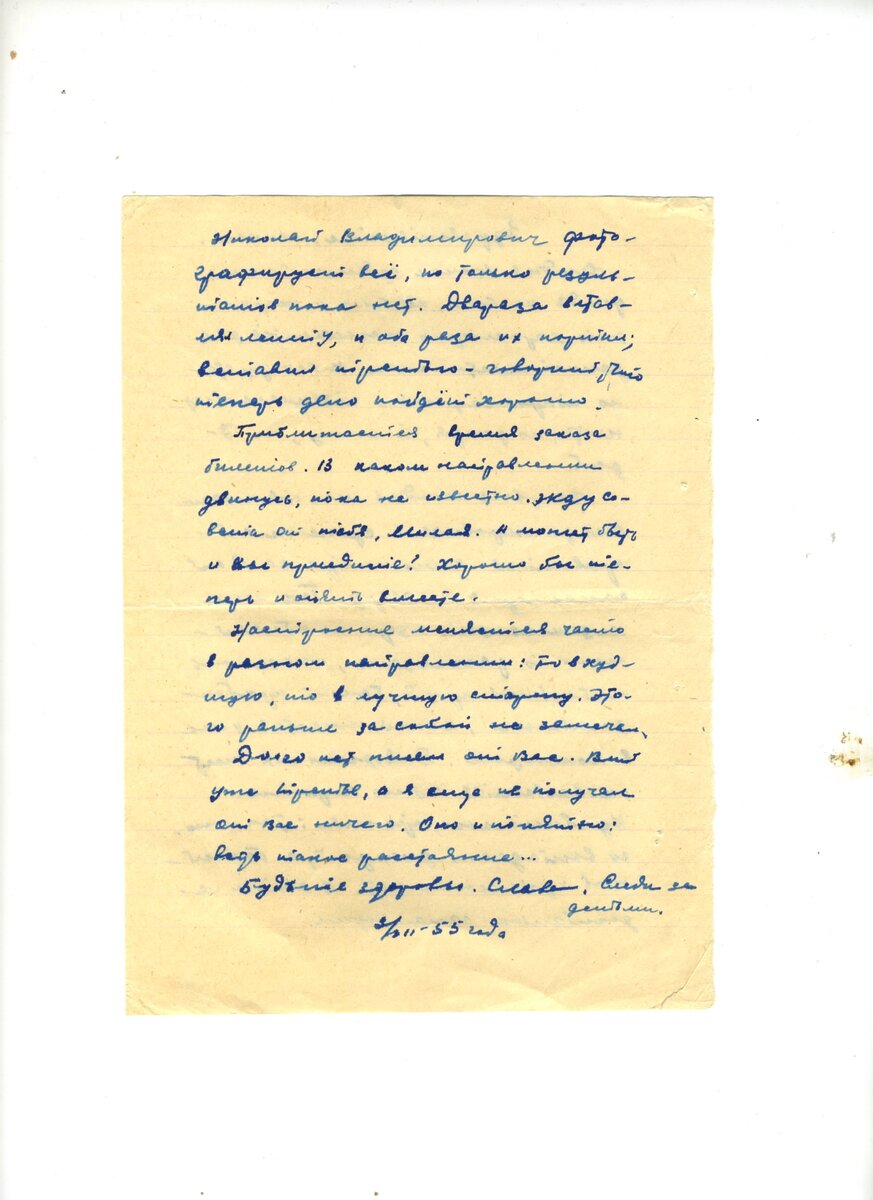 Николай Владимирович фото-
графирует всё, но только резуль-
татов пока нет. Двараза встав-
лял ленту, и оба раза их портил;
вставил третью – говорит, что
теперь дело пойдёт хорошо.
Приближается время заказа
билетов. В каком направлении
двинусь, пока не известно. Жду со-
вета от тебя, милая. А может быть
и вы приедите? Хорошо бы те-
перь и опять вместе.
Настроение меняется часто
в разном направлении: то в худ-
шую, то в лучшую сторону. Это-
го раньше за собой не замечал.
Долго нет писем от Вас. Вит
уже третье, а я еще не получал
от вас ничего. Оно и понятно:
ведь такое расстояние...
Будьте здоровы. Слава. Следи за
детьми.
55 года